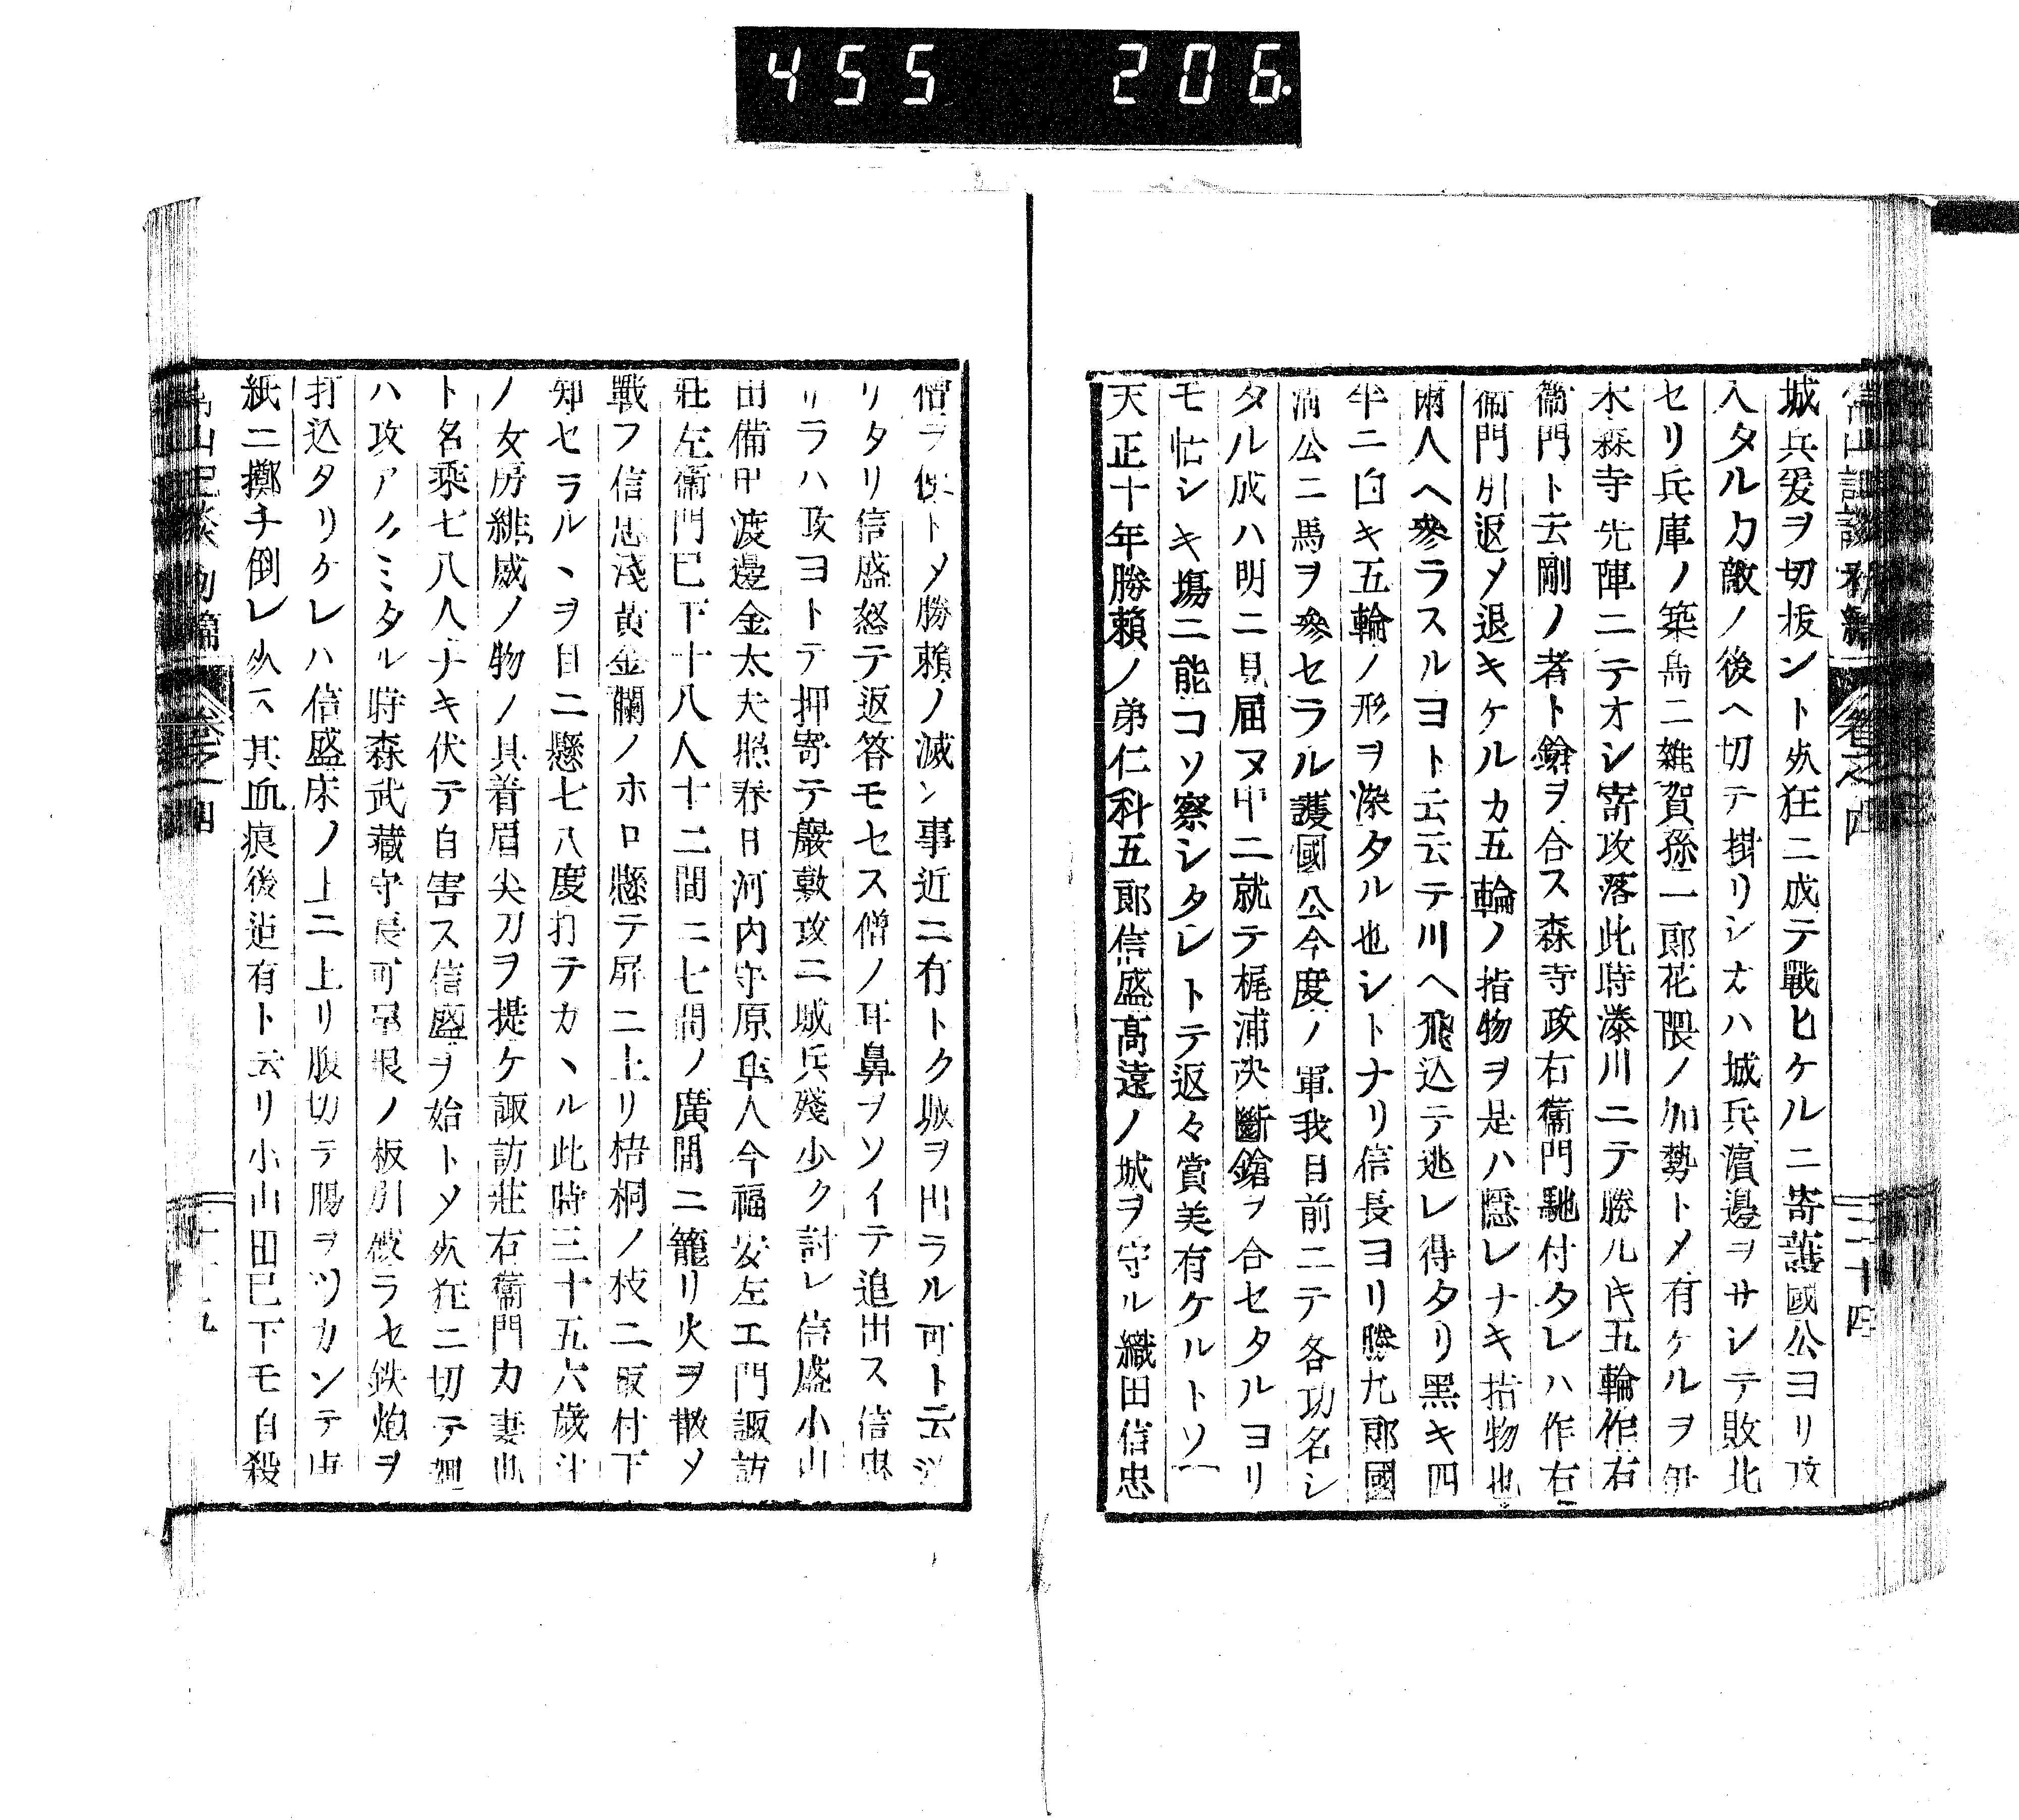 455 206.
常山記談初編 卷之四 三十四
城兵爰ヲ切拔ント死狂ニ成テ戰ヒケルニ寄護國公ヨリ攻
入タルカ敵ノ後ヘ切テ掛リシ故ハ城兵濱邊ヲサシテ敗北
セリ兵庫ノ築島ニ雜賀孫一郎花隈ノ加勢トメ有ケルヲ伊
木森寺先陣ニテオシ寄攻落此時湊川ニテ勝九氏五輪作右
衞門ト云剛ノ者ト鎗ヲ合ス森寺政右衞門馳付タレハ作右
衞門引返メ退キケルカ五輪ノ指物ヲ是ハ隱レナキ指物也
兩人ヘ參ラスルヨト云云テ川ヘ飛込テ逃レ得タリ黑キ四
半ニ白キ五輪ノ形ヲ染タル也シトナリ信長ヨリ勝九郎國
淸公ニ馬ヲ參セラル護國公今度ノ軍我目前ニテ各功名シ
タル成ハ明ニ見屆ヌ中ニ就テ梶浦决斷鎗ヲ合セタルヨリ
モ怯シキ塲ニ能コソ察シタレトテ返々賞美有ケルトソ
天正十年勝賴ノ弟仁科五郎信盛髙遠ノ城ヲ守ル織田信忠
僧ヲ使トメ勝賴ノ滅ン事近ニ有トク城ヲ出ラル可ト云送
リタリ信盛怒テ返答モセス僧ノ耳鼻ヲソイテ追出ス信忠
リラハ攻ヨトテ押寄テ嚴敷攻ニ城兵殘少ク討レ信盛小山
田備中渡邊金太夫照春日河内守原隼人今福安左エ門諏訪
莊左衞門已下十八人十二間ニ七間ノ廣間ニ籠リ火ヲ散メ
戰フ信忠淺黄金襴ノホロ懸テ屛ニ上リ梧桐ノ枝ニ取付下
知セラルヽヲ目ニ懸七八度打テカヽル此時三十五六歲斗
ノ女房緋威ノ物ノ具着眉尖刀ヲ提ケ諏訪莊右衞門カ妻也
ト名乘七八人ナキ伏テ自害ス信盛ヲ始トメ死狂ニ切テ廻
ハ攻アクミタル時森武藏守長可屋根ノ板引破ラセ鉄炮ヲ
打込タリケレハ信盛床ノ上ニ上リ腹切テ腸ヲツカンテ唐
紙ニ擲チ倒レ死ス其血痕後迠有ト云リ小山田已下モ自殺
卷之四